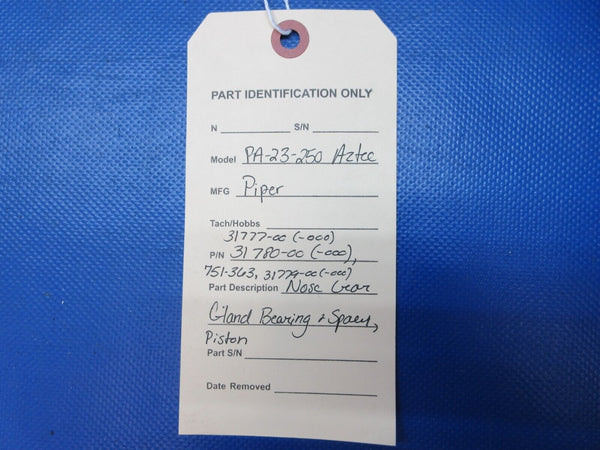 PART IDENTIFICATION ONLY
N S/N
Model PA-23-250 Aztec
MFG Piper
Tach/Hobbs
31777-00 (-000)
P/N 31780-00 (-000),
751-363, 31779-00 (-000)
Part Description Nose Gear
Gland Bearing + Spacer,
Piston
Part S/N
Date Removed